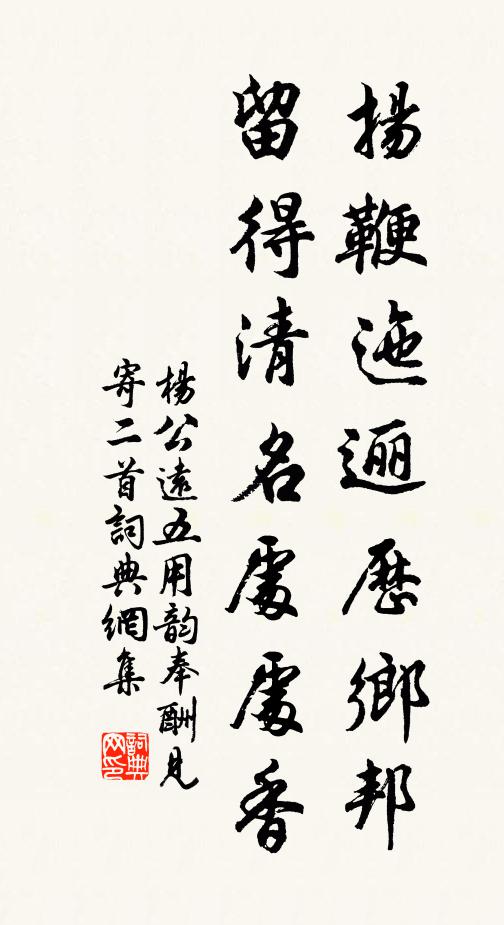 揚鞭迤逦歷鄉邦
留得清名處處香
楊公遠五用韵奉酬見
寄二首詞典網集
詞典
网印